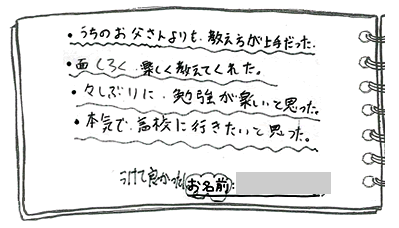 ・うちのお父さんよりも、教え方が上手だった。
・面しろく、楽しく教えてくれた。
・久しぶりに、勉強が楽しいと思った。
・本気で、高校に行きたいと思った。
うけて良かった!
お名前: